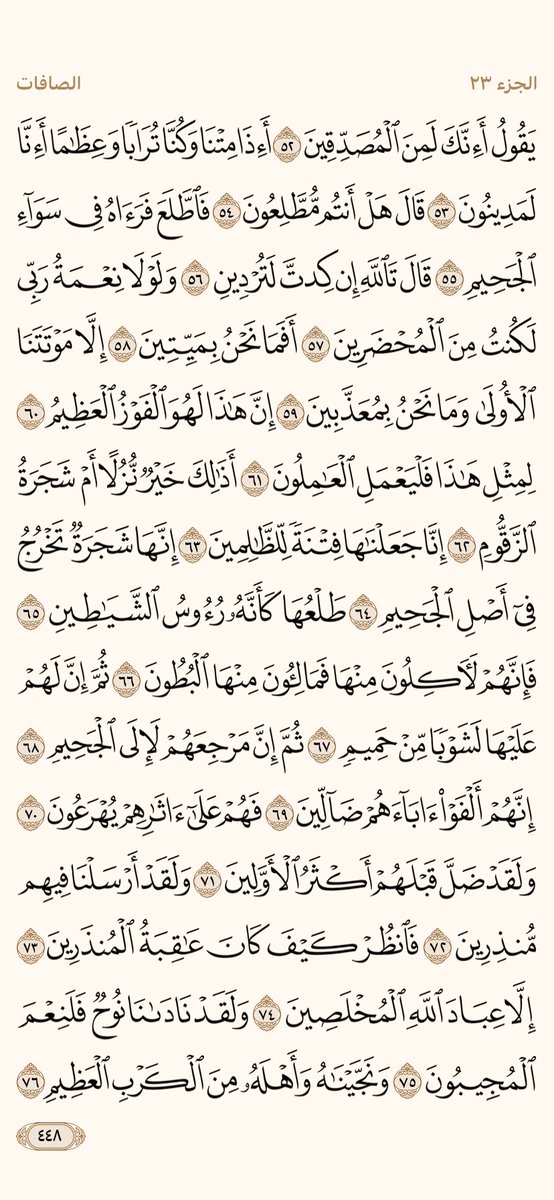 الجزء ٢٣
الصافات
يَقُولُ أَءِنَّكَ لَمِنَ ٱلْمُصَدِّقِينَ ٥٢ أَءِذَا مِتْنَا وَكُنَّا تُرَابًا وَعِظَٰمًا أَءِنَّا
لَمَدِينُونَ ٥٣ قَالَ هَلْ أَنتُم مُّطَّلِعُونَ ٥٤ فَٱطَّلَعَ فَرَءَاهُ فِى سَوَآءِ
ٱلْجَحِيمِ ٥٥ قَالَ تَٱللَّهِ إِن كِدتَّ لَتُرْدِينِ ٥٦ وَلَوْلَا نِعْمَةُ رَبِّى
لَكُنتُ مِنَ ٱلْمُحْضَرِينَ ٥٧ أَفَمَا نَحْنُ بِمَيِّتِينَ ٥٨ إِلَّا مَوْتَتَنَا
ٱلْأُولَىٰ وَمَا نَحْنُ بِمُعَذَّبِينَ ٥٩ إِنَّ هَٰذَا لَهُوَ ٱلْفَوْزُ ٱلْعَظِيمُ ٦٠
لِمِثْلِ هَٰذَا فَلْيَعْمَلِ ٱلْعَٰمِلُونَ ٦١ أَذَٰلِكَ خَيْرٌ نُّزُلًا أَمْ شَجَرَةُ
ٱلزَّقُّومِ ٦٢ إِنَّا جَعَلْنَٰهَا فِتْنَةً لِّلظَّٰلِمِينَ ٦٣ إِنَّهَا شَجَرَةٌ تَخْرُجُ
فِىٓ أَصْلِ ٱلْجَحِيمِ ٦٤ طَلْعُهَا كَأَنَّهُۥ رُءُوسُ ٱلشَّيَٰطِينِ ٦٥
فَإِنَّهُمْ لَءَاكِلُونَ مِنْهَا فَمَالِـُٔونَ مِنْهَا ٱلْبُطُونَ ٦٦ ثُمَّ إِنَّ لَهُمْ
عَلَيْهَا لَشَوْبًا مِّنْ حَمِيمٍ ٦٧ ثُمَّ إِنَّ مَرْجِعَهُمْ لَإِلَى ٱلْجَحِيمِ ٦٨
إِنَّهُمْ أَلْفَوْا۟ ءَابَآءَهُمْ ضَآلِّينَ ٦٩ فَهُمْ عَلَىٰٓ ءَاثَٰرِهِمْ يُهْرَعُونَ ٧٠
وَلَقَدْ ضَلَّ قَبْلَهُمْ أَكْثَرُ ٱلْأَوَّلِينَ ٧١ وَلَقَدْ أَرْسَلْنَا فِيهِم
مُّنذِرِينَ ٧٢ فَٱنظُرْ كَيْفَ كَانَ عَٰقِبَةُ ٱلْمُنذَرِينَ ٧٣
إِلَّا عِبَادَ ٱللَّهِ ٱلْمُخْلَصِينَ ٧٤ وَلَقَدْ نَادَىٰنَا نُوحٌ فَلَنِعْمَ
ٱلْمُجِيبُونَ ٧٥ وَنَجَّيْنَٰهُ وَأَهْلَهُۥ مِنَ ٱلْكَرْبِ ٱلْعَظِيمِ ٧٦
٤٤٨